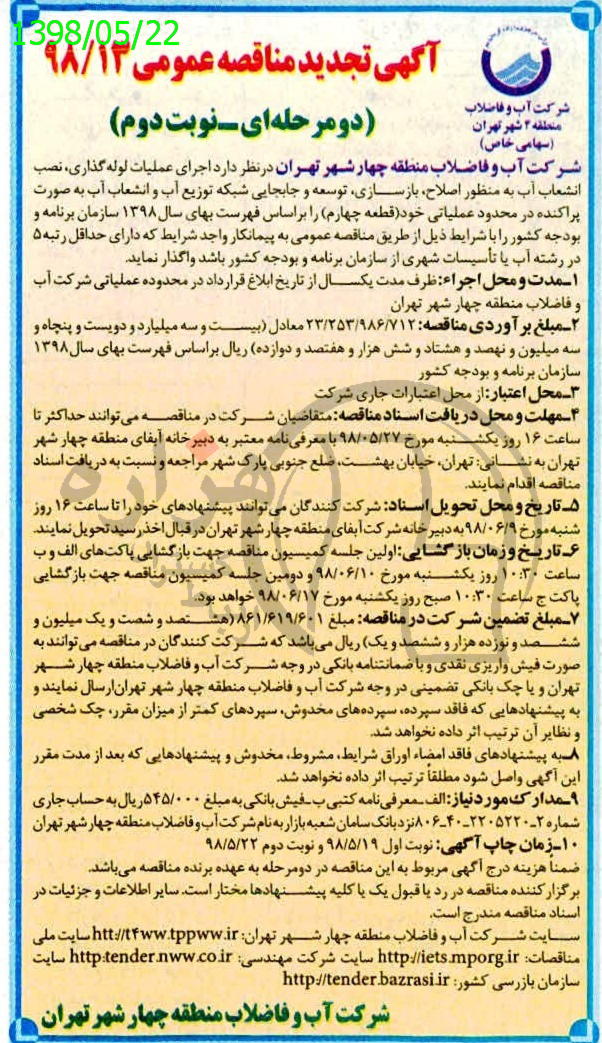 1398/05/22
آگهی تجدید مناقصه عمومی ۹۸/۱۳
(دو مرحله‌ای ـ نوبت دوم)
شرکت آب و فاضلاب
منطقه ۴ شهر تهران
(سهامی خاص)
شرکت آب و فاضلاب منطقه چهار شهر تهران در نظر دارد اجرای عملیات لوله گذاری، نصب
انشعاب آب به منظور اصلاح، بازسازی، توسعه و جابجایی شبکه توزیع آب و انشعاب آب به صورت
پراکنده در محدود عملیاتی خود (قطعه چهارم) را براساس فهرست بهای سال ۱۳۹۸ سازمان برنامه و
بودجه کشور را با شرایط ذیل از طریق مناقصه عمومی به پیمانکار واجد شرایط که دارای حداقل رتبه ۵
در رشته آب یا تأسیسات شهری از سازمان برنامه و بودجه کشور باشد واگذار نماید.
۱ـ مدت و محل اجراء: ظرف مدت یکسال از تاریخ ابلاغ قرارداد در محدوده عملیاتی شرکت آب
و فاضلاب منطقه چهار شهر تهران
۲ـ مبلغ برآوردی مناقصه: ۲۳/۲۵۳/۹۸۶/۷۱۲ معادل (بیست و سه میلیارد و دویست و پنجاه و
سه میلیون و نهصد و هشتاد و شش هزار و هفتصد و دوازده) ریال براساس فهرست بهای سال ۱۳۹۸
سازمان برنامه و بودجه کشور
۳ـ محل اعتبار: از محل اعتبارات جاری شرکت
۴ـ مهلت و محل دریافت اسناد مناقصه: متقاضیان شرکت در مناقصه می‌توانند حداکثر تا
ساعت ۱۶ روز یکشنبه مورخ ۹۸/۰۵/۲۷ با معرفی نامه معتبر به دبیرخانه آبفای منطقه چهار شهر
تهران به نشانی: تهران، خیابان بهشت، ضلع جنوبی پارک شهر مراجعه و نسبت به دریافت اسناد
مناقصه اقدام نمایند.
۵ـ تاریخ و محل تحویل اسناد: شرکت کنندگان می‌توانند پیشنهادهای خود را تا ساعت ۱۶ روز
شنبه مورخ ۹۸/۰۶/۹ به دبیرخانه شرکت آبفای منطقه چهار شهر تهران در قبال اخذ رسید تحویل نمایند.
۶ـ تاریخ و زمان بازگشایی: اولین جلسه کمیسیون مناقصه جهت بازگشایی پاکت‌های الف و ب
ساعت ۱۰:۳۰ روز یکشنبه مورخ ۹۸/۰۶/۱۰ و دومین جلسه کمیسیون مناقصه جهت بازگشایی
پاکت ج ساعت ۱۰:۳۰ صبح روز یکشنبه مورخ ۹۸/۰۶/۱۷ خواهد بود.
۷ـ مبلغ تضمین شرکت در مناقصه: مبلغ ۸۶۱/۶۱۹/۶۰۱ (هشتصد و شصت و یک میلیون و
ششصد و نوزده هزار و ششصد و یک) ریال می‌باشد که شرکت کنندگان در مناقصه می‌توانند به
صورت فیش واریزی نقدی و با ضمانتنامه بانکی در وجه شرکت آب و فاضلاب منطقه چهار شهر
تهران و یا چک بانکی تضمینی در وجه شرکت آب و فاضلاب منطقه چهار شهر تهران ارسال نمایند و
به پیشنهادهایی که فاقد سپرده، سپرده‌های مخدوش، سپرده‌های کمتر از میزان مقرر، چک شخصی
و نظایر آن ترتیب اثر داده نخواهد شد.
۸ـ به پیشنهادهای فاقد امضاء اوراق شرایط، مشروط، مخدوش و پیشنهادهایی که بعد از مدت مقرر
این آگهی واصل شود مطلقاً ترتیب اثر داده نخواهد شد.
۹ـ مدارک مورد نیاز: الف ـ معرفی نامه کتبی ب ـ فیش بانکی به مبلغ ۵۴۵/۰۰۰ ریال به حساب جاری
شماره ۲ـ۲۲۰۵۲۲۰ـ۴۰ـ۸۰۶ نزد بانک سامان شعبه بازار به نام شرکت آب و فاضلاب منطقه چهار شهر تهران
۱۰ـ زمان چاپ آگهی: نوبت اول ۹۸/۵/۱۹ و نوبت دوم ۹۸/۵/۲۲
ضمناً هزینه درج آگهی مربوط به این مناقصه در دو مرحله به عهده برنده مناقصه می‌باشد.
برگزار کننده مناقصه در رد یا قبول یک یا کلیه پیشنهادها مختار است. سایر اطلاعات و جزئیات در
اسناد مناقصه مندرج است.
سایت شرکت آب و فاضلاب منطقه چهار شهر تهران: htt://t4ww.tppww.ir سایت ملی
مناقصات: http://iets.mporg.ir سایت شرکت مهندسی: http:tender.nww.co.ir سایت
سازمان بازرسی کشور: http://tender.bazrasi.ir
شرکت آب و فاضلاب منطقه چهار شهر تهران